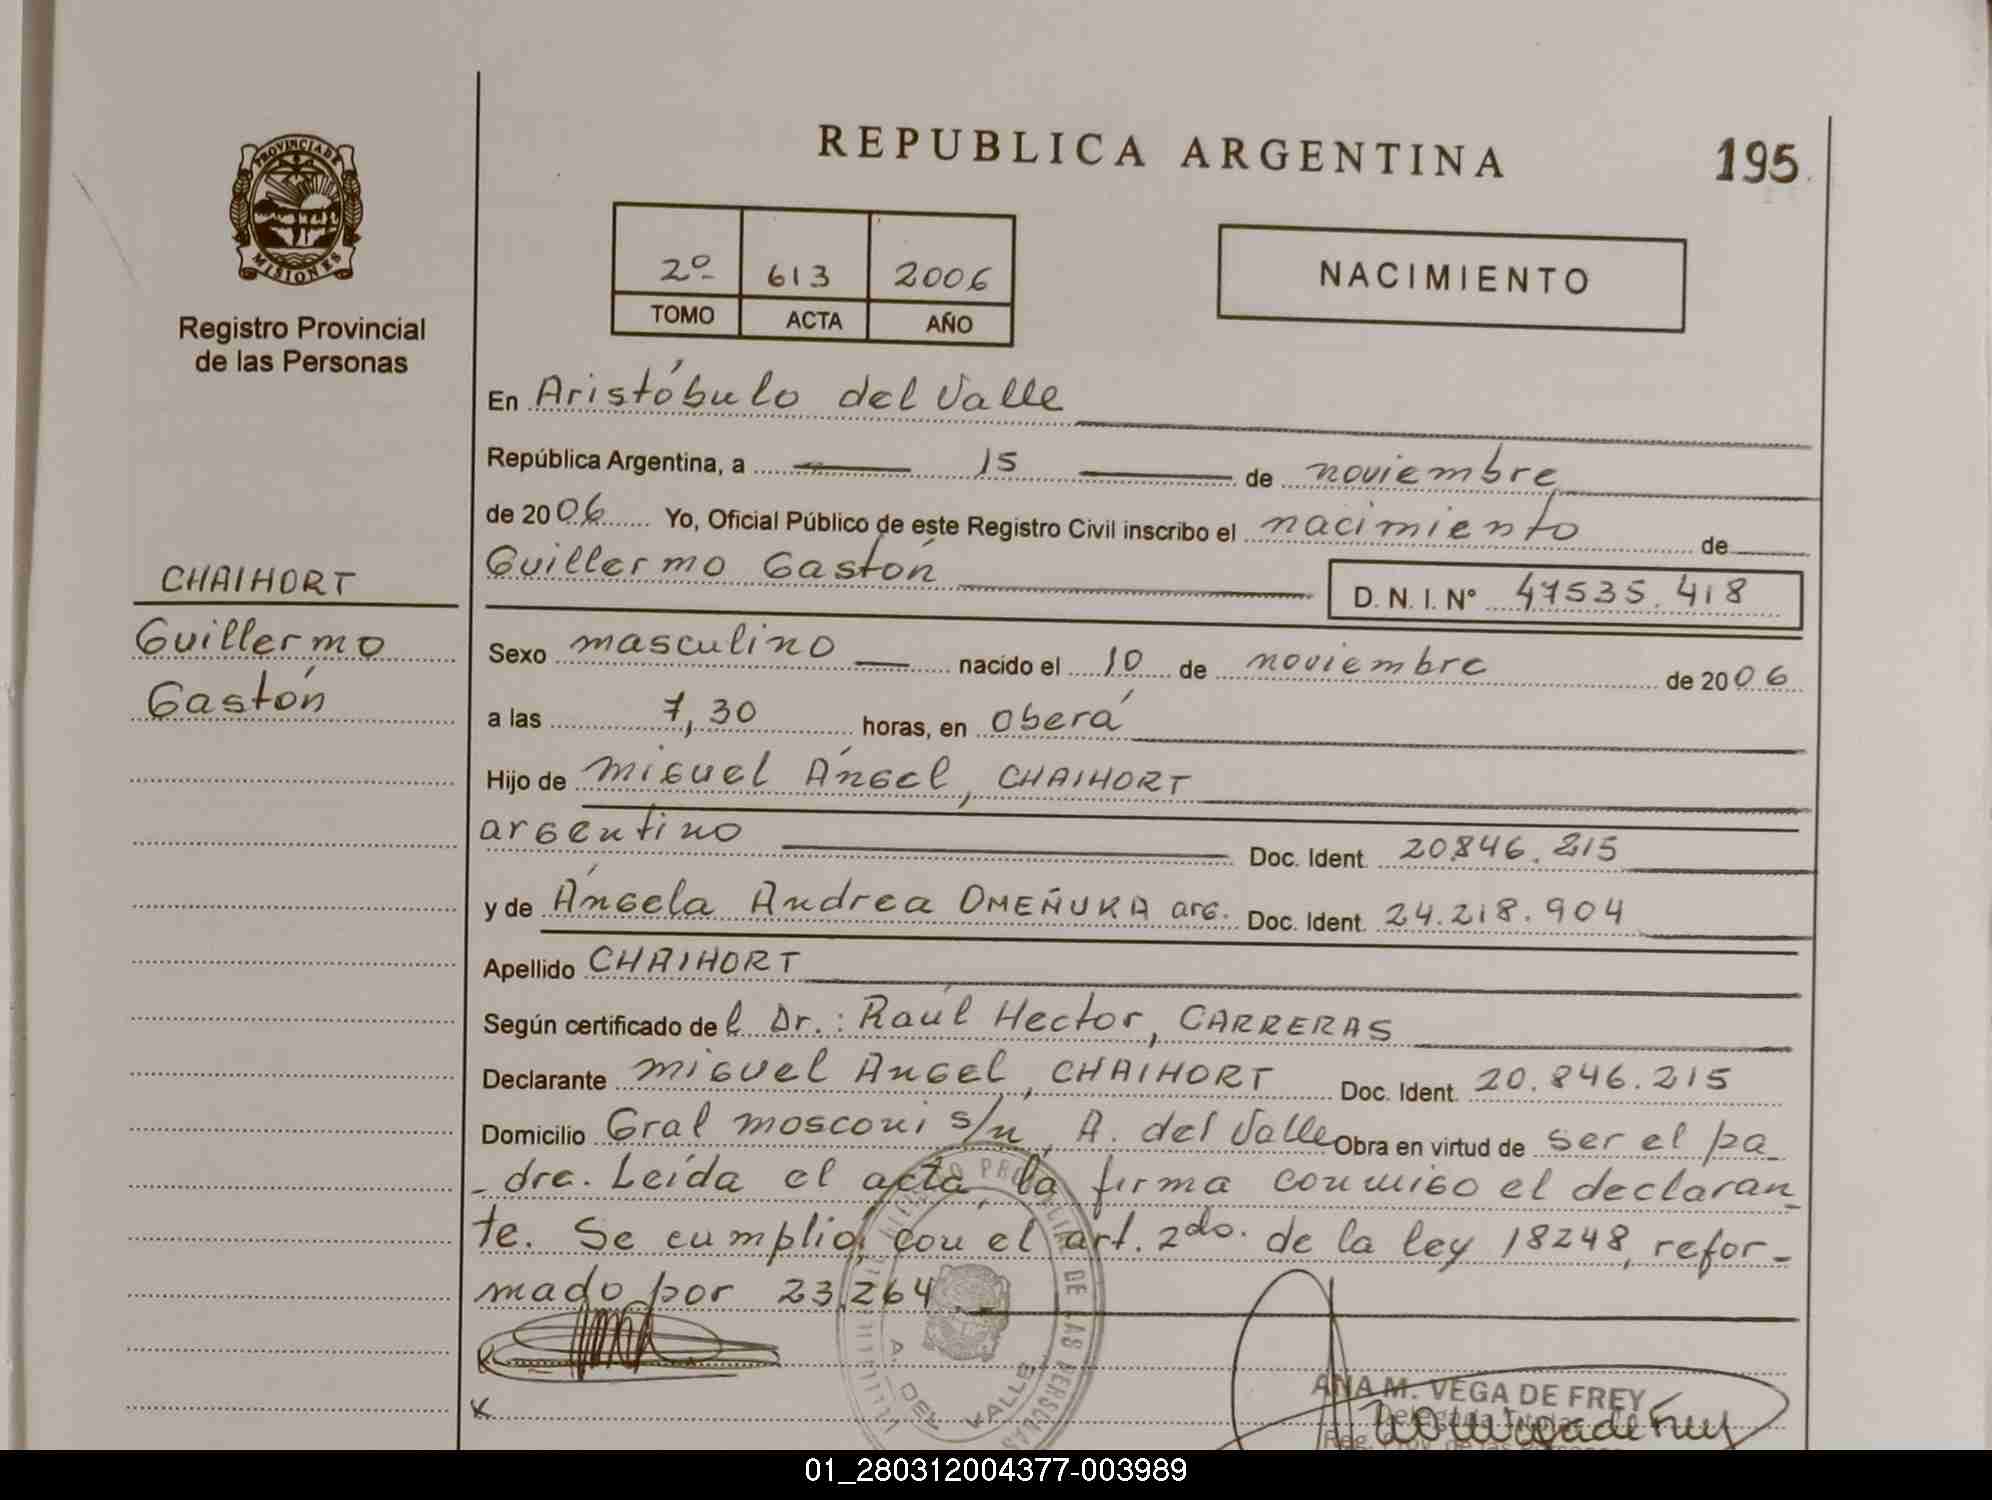 REPUBLICA ARGENTINA
195
PROVINCIA DE
MISIONES
Registro Provincial
de las Personas
2º 613 2006
TOMO ACTA AÑO
NACIMIENTO
En Aristóbulo del Valle
República Argentina, a 15 de noviembre
de 2006 Yo, Oficial Público de este Registro Civil inscribo el nacimiento de
Guillermo Gastón D. N. I. Nº 47535.418
CHAIHORT
Guillermo
Gastón
Sexo masculino nacido el 10 de noviembre de 2006
a las 7,30 horas, en Oberá
Hijo de Miguel Ángel, CHAIHORT
argentino Doc. Ident. 20846.215
y de Ángela Andrea OMEÑUKA arg. Doc. Ident. 24.218.904
Apellido CHAIHORT
Según certificado del Dr.: Raúl Hector, CARRERAS
Declarante Miguel Angel, CHAIHORT Doc. Ident. 20.846.215
Domicilio Gral Mosconi s/n, A. del Valle Obra en virtud de ser el pa-
-dre. Leída el acta, la firma conmigo el declaran
te. Se cumplió, con el art. 2do. de la ley 18248, refor-
mado por 23.264.
PROVINCIAL DE LAS PERSONAS
A. DEL VALLE
x
ANA M. VEGA DE FREY
Delegada Titular
Reg. Prov. de las Personas
01_280312004377-003989